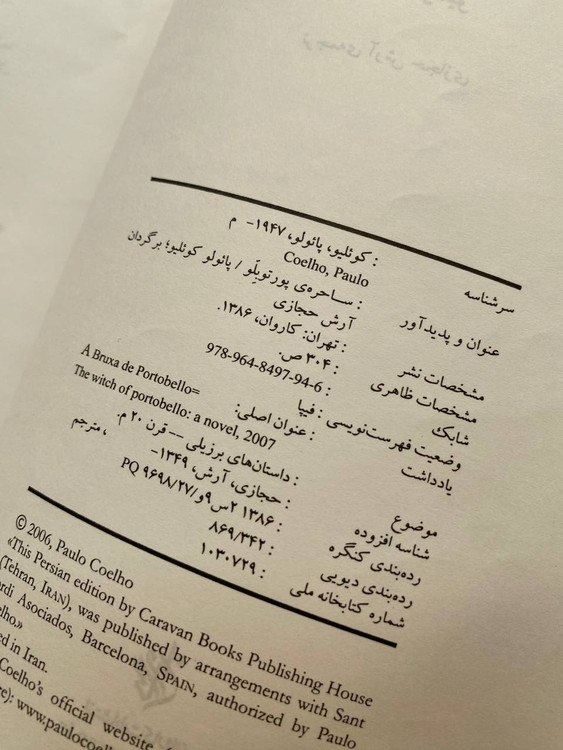 سرشناسه : کوئلیو، پائولو، ۱۹۴۷- م
Coelho, Paulo
عنوان و پدیدآور : ساحره‌ی پورتوبلّو / پائولو کوئلیو؛ برگردان
آرش حجازی
مشخصات نشر : تهران: کاروان، ۱۳۸۶.
مشخصات ظاهری : ۳۰۴ ص.
شابک : 978-964-8497-94-6
وضعیت فهرست‌نویسی : فیپا
یادداشت : عنوان اصلی: A Bruxa de Portobello=
The witch of portobello: a novel, 2007
موضوع : داستان‌های برزیلی -- قرن ۲۰ م.
شناسه افزوده : حجازی، آرش، ۱۳۴۹- ، مترجم
رده‌بندی کنگره : ۱۳۸۶ ۲س۹و/۹۶۹۸/۲۷ PQ
رده‌بندی دیویی : ۸۶۹/۳۴۲
شماره کتابخانه ملی : ۱۰۳۰۷۲۹
© 2006, Paulo Coelho
«This Persian edition by Caravan Books Publishing House
(Tehran, IRAN), was published by arrangements with Sant
Asociados, Barcelona, SPAIN, authorized by Paulo
in Iran.
Coelho's official website
www.paulocoe